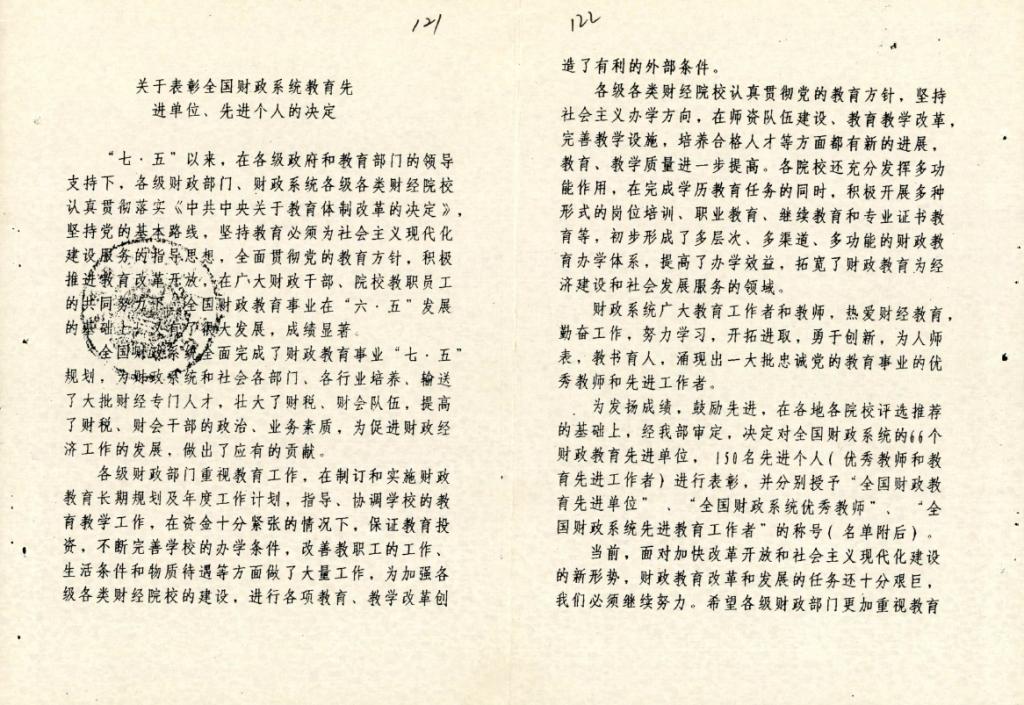 121
关于表彰全国财政系统教育先
进单位、先进个人的决定
“七·五”以来，在各级政府和教育部门的领导
支持下，各级财政部门、财政系统各级各类财经院校
认真贯彻落实《中共中央关于教育体制改革的决定》，
坚持党的基本路线，坚持教育必须为社会主义现代化
建设服务的指导思想，全面贯彻党的教育方针，积极
推进教育改革开放，在广大财政干部、院校教职员工
的共同努力下，全国财政教育事业在“六·五”发展
的基础上，又有了很大发展，成绩显著。
全国财政系统全面完成了财政教育事业“七·五”
规划，为财政系统和社会各部门、各行业培养、输送
了大批财经专门人才，壮大了财税、财会队伍，提高
了财税、财会干部的政治、业务素质，为促进财政经
济工作的发展，做出了应有的贡献。
各级财政部门重视教育工作，在制订和实施财政
教育长期规划及年度工作计划，指导、协调学校的教
育教学工作，在资金十分紧张的情况下，保证教育投
资，不断完善学校的办学条件，改善教职工的工作、
生活条件和物质待遇等方面做了大量工作，为加强各
级各类财经院校的建设，进行各项教育、教学改革创
122
造了有利的外部条件。
各级各类财经院校认真贯彻党的教育方针，坚持
社会主义办学方向，在师资队伍建设、教育教学改革，
完善教学设施，培养合格人才等方面都有新的进展，
教育、教学质量进一步提高。各院校还充分发挥多功
能作用，在完成学历教育任务的同时，积极开展多种
形式的岗位培训、职业教育、继续教育和专业证书教
育等，初步形成了多层次、多渠道、多功能的财政教
育办学体系，提高了办学效益，拓宽了财政教育为经
济建设和社会发展服务的领域。
财政系统广大教育工作者和教师，热爱财经教育，
勤奋工作，努力学习，开拓进取，勇于创新，为人师
表，教书育人，涌现出一大批忠诚党的教育事业的优
秀教师和先进工作者。
为发扬成绩，鼓励先进，在各地各院校评选推荐
的基础上，经我部审定，决定对全国财政系统的66个
财政教育先进单位，150名先进个人（优秀教师和教
育先进工作者）进行表彰，并分别授予“全国财政教
育先进单位”、“全国财政系统优秀教师”、“全
国财政系统先进教育工作者”的称号（名单附后）。
当前，面对加快改革开放和社会主义现代化建设
的新形势，财政教育改革和发展的任务还十分艰巨，
我们必须继续努力。希望各级财政部门更加重视教育